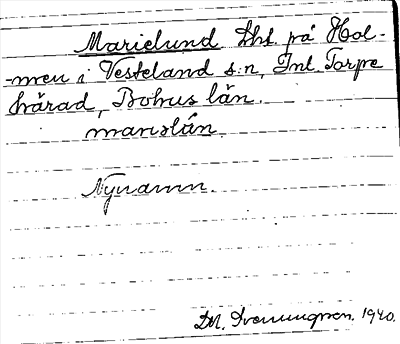 Marielund Lht. på Hol-
-men i Vesteland s:n, Inl. Torpe
härad, Bohus län.
marıslún
Nynamn.
M. 1940.